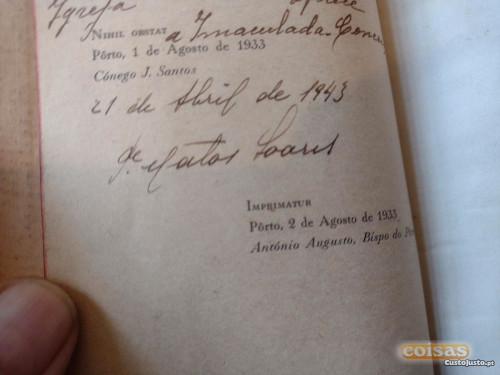 Igreja
NIHIL OBSTAT a Imaculada Conc
Pôrto, 1 de Agosto de 1933
Cónego J. Santos
21 de Abril de 1943
Pe Matos Soares
IMPRIMATUR
Pôrto, 2 de Agosto de 1933
António Augusto, Bispo do
coisas
CustoJusto.pt